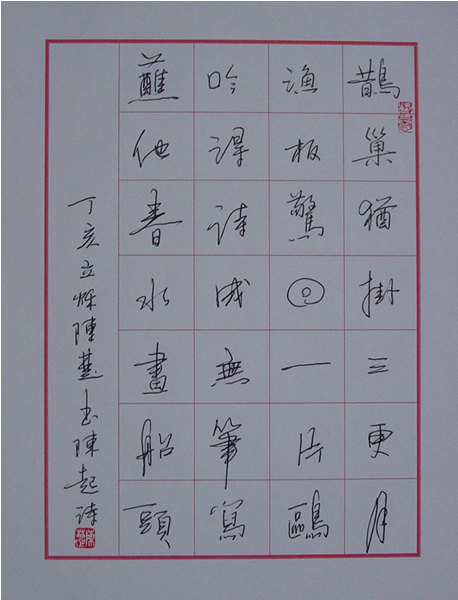 鵲巢猶掛三更月
漁板驚回一片鷗
吟得詩成無筆寫
蘸他春水畫船頭
丁亥立秋陳書陳起詩